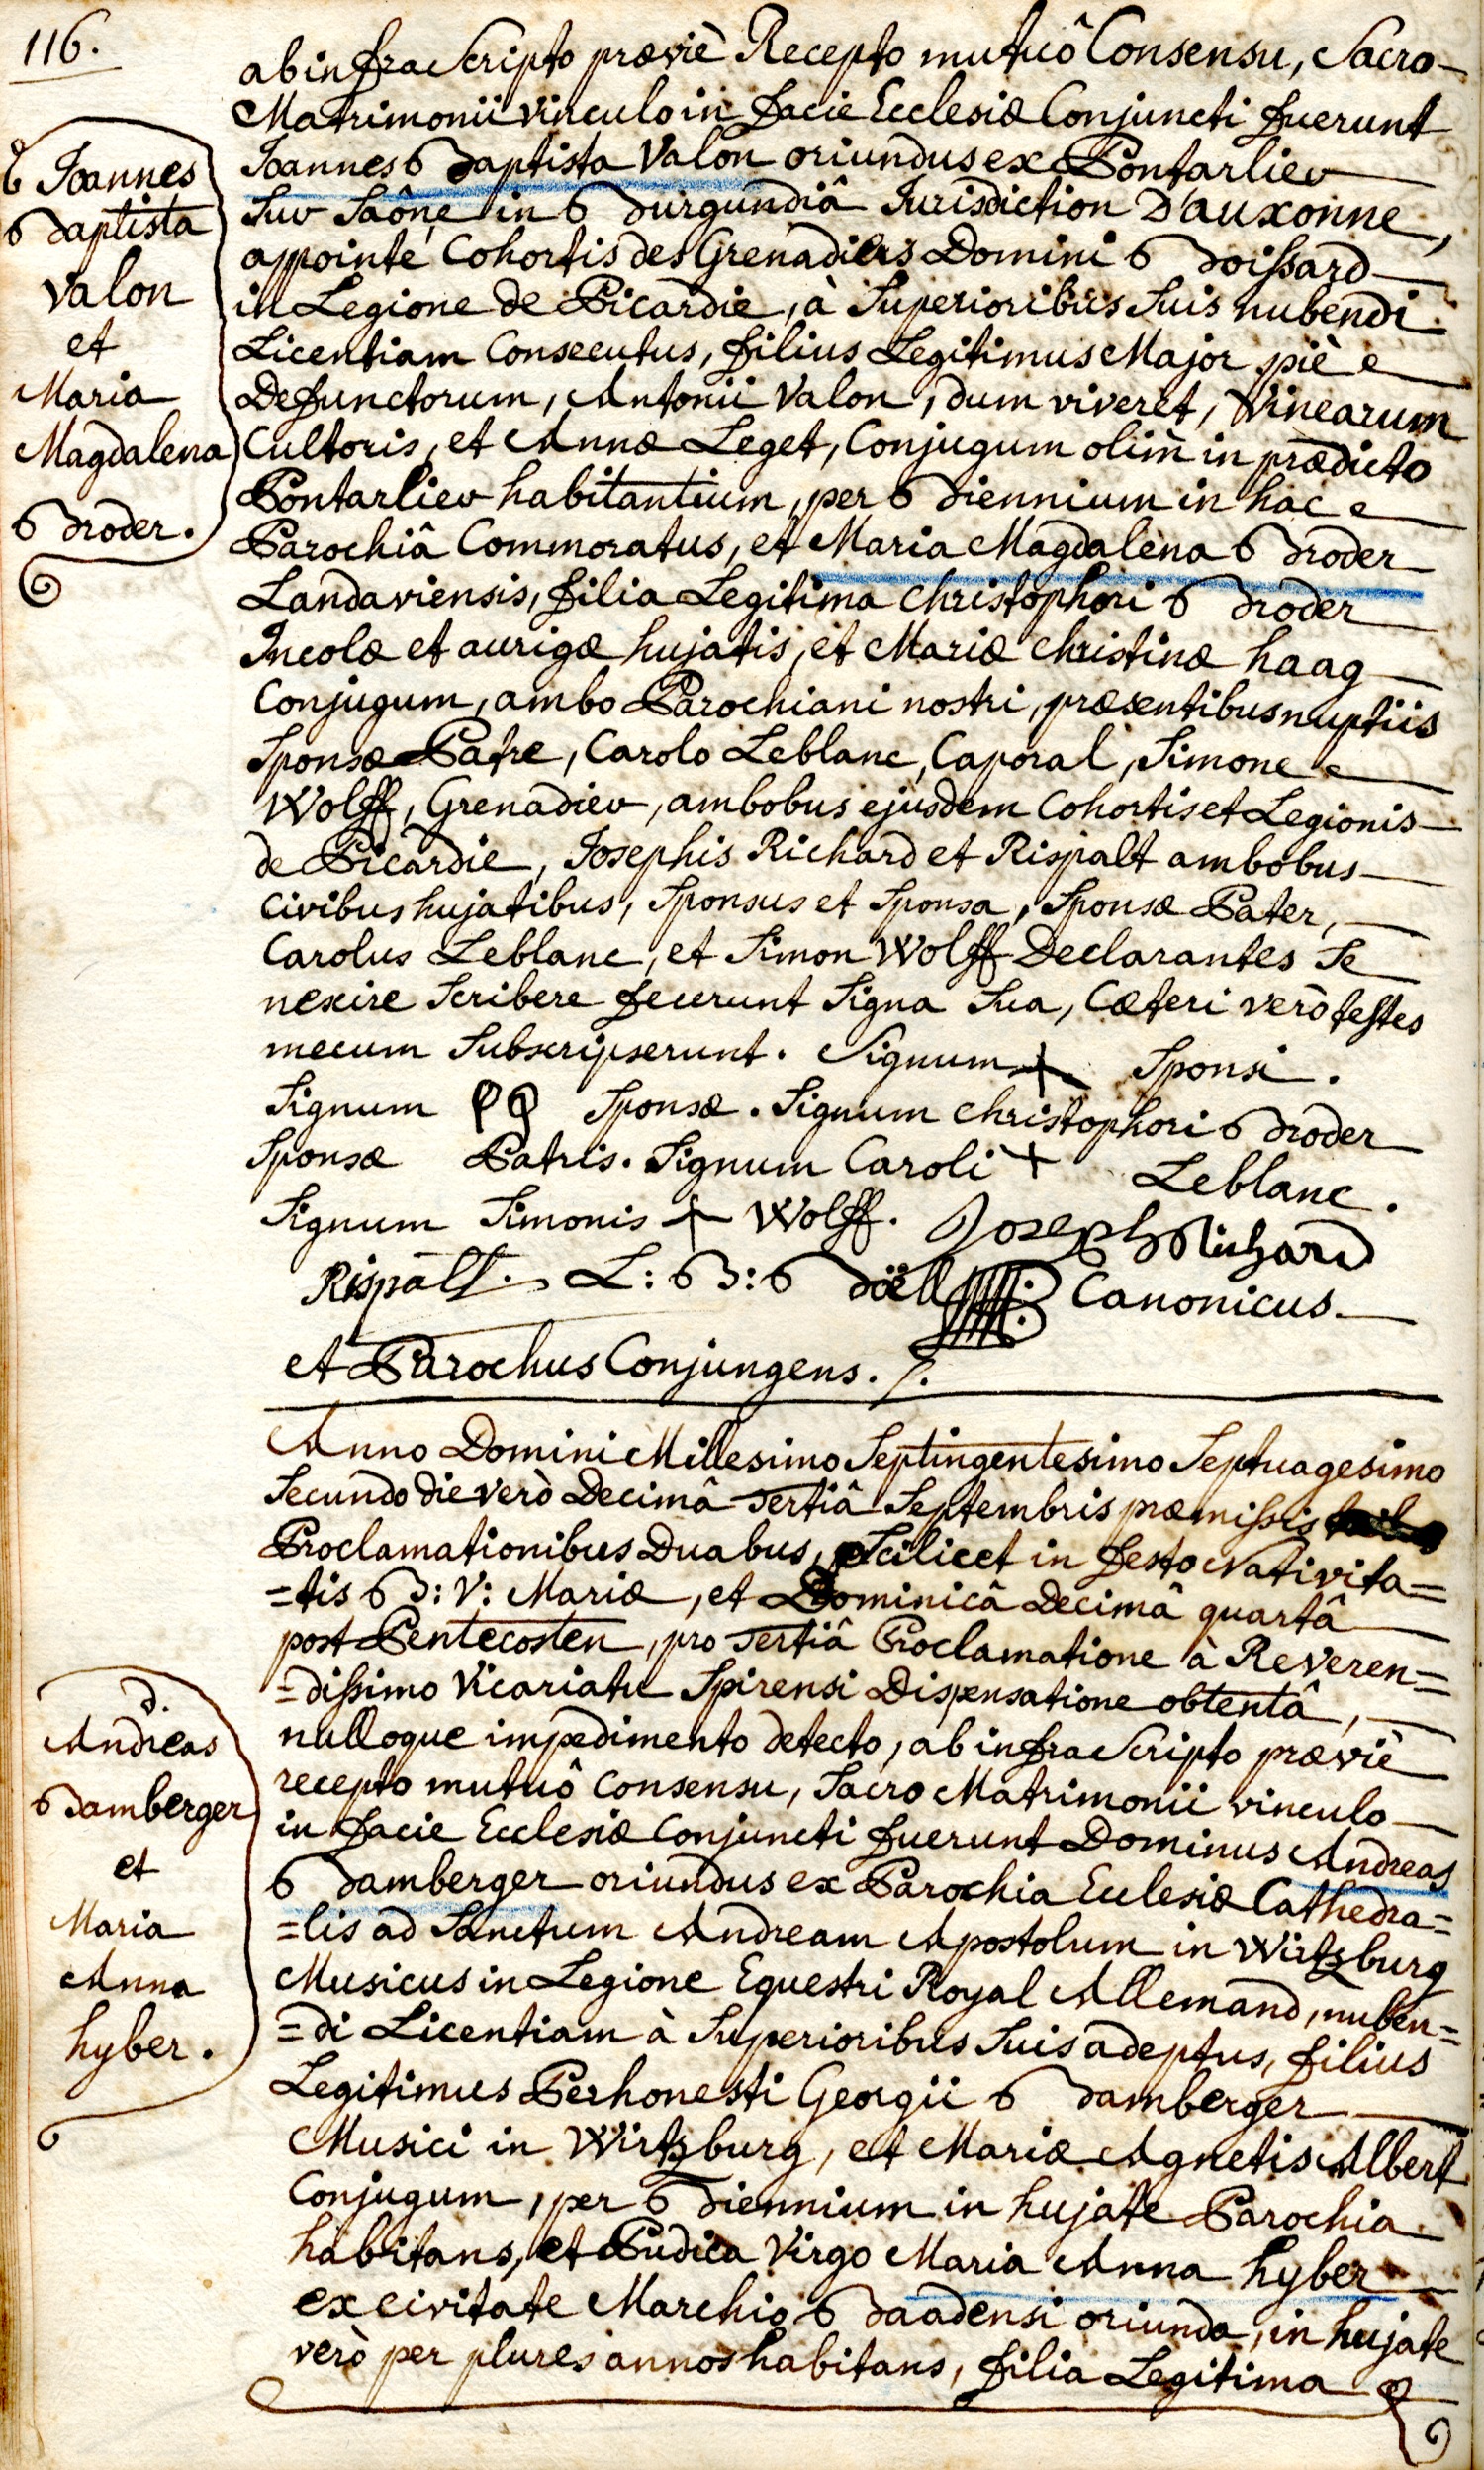 116.
ab infra Scripto præviè Recepto mutuô Consensu, Sacro
Matrimonii vinculo in facie Ecclesiæ Conjuncti fuerunt
Joannes Baptista Valon oriundus ex Pontarlier
Sur Saône in Burgundiâ Jurisdiction D'auxonne,
appointé Cohortis des Grenadiers Domini Boissard
in Legione de Picardie, à Superioribus Suis nubendi
Licentiam Consecutus, filius Legitimus Major piè
Defunctorum, Antonii Valon, dum viveret, Vinearum
Cultoris, et Annæ Leget, Conjugum olim in prædicto
Pontarlier habitantium, per Biennium in hac
Parochiâ Commoratus, et Maria Magdalena Broder
Landaviensis, filia Legitima Christophori Broder
Incolæ et aurigæ hujatis, et Mariæ Christinæ haag
Conjugum, ambo Parochiani nostri, præsentibus nuptiis
Sponsæ Patre, Carolo Leblanc, Caporal, Simone
Wolff, Grenadier, ambobus ejusdem Cohortis et Legionis
de Picardie, Josephis Richard et Rispalt ambobus
Civibus hujatibus, Sponsus et Sponsa, Sponsæ Pater,
Carolus Leblanc, et Simon Wolff Declarantes Se
nescire Scribere fecerunt Signa Sua, Cæteri verò testes
mecum Subscripserunt. Signum + Sponsi.
Signum Sponsæ. Signum Christophori Broder
Sponsæ Patris. Signum Caroli + Leblanc.
Signum Simonis + Wolff. Joseph Richard
Rispalt. L: B: Böell Canonicus
et Parochus Conjungens.
Joannes
Baptista
Valon
et
Maria
Magdalena
Broder.
Anno Domini Millesimo Septingentesimo Septuagesimo
Secundo die verò Decimâ tertiâ Septembris præmissis
Proclamationibus Duabus, Scilicet in festo Nativita=
=tis B: V: Mariæ, et Dominicâ Decimâ quartâ
post Pentecosten, pro tertiâ Proclamatione à Reveren=
=dissimo Vicariatu Spirensi Dispensatione obtentâ,
nulloque impedimento detecto, ab infra Scripto præviè
recepto mutuô Consensu, Sacro Matrimonii vinculo
in facie Ecclesiæ Conjuncti fuerunt Dominus Andreas
Bamberger oriundus ex Parochia Ecclesiæ Cathedra=
=lis ad Sanctum Andream Apostolum in Wirtzburg
Musicus in Legione Equestri Royal Allemand, nuben=
=di Licentiam à Superioribus Suis adeptus, filius
Legitimus Perhonesti Georgii Bamberger
Musici in Wirtzburg, et Mariæ Agnetis Albert
Conjugum, per Biennium in hujate Parochia
habitans, et Pudica Virgo Maria Anna hyber
ex civitate Marchio Baadensi oriunda, in hujate
verò per plures annos habitans, filia Legitima
D.
Andreas
Bamberger
et
Maria
Anna
hyber.